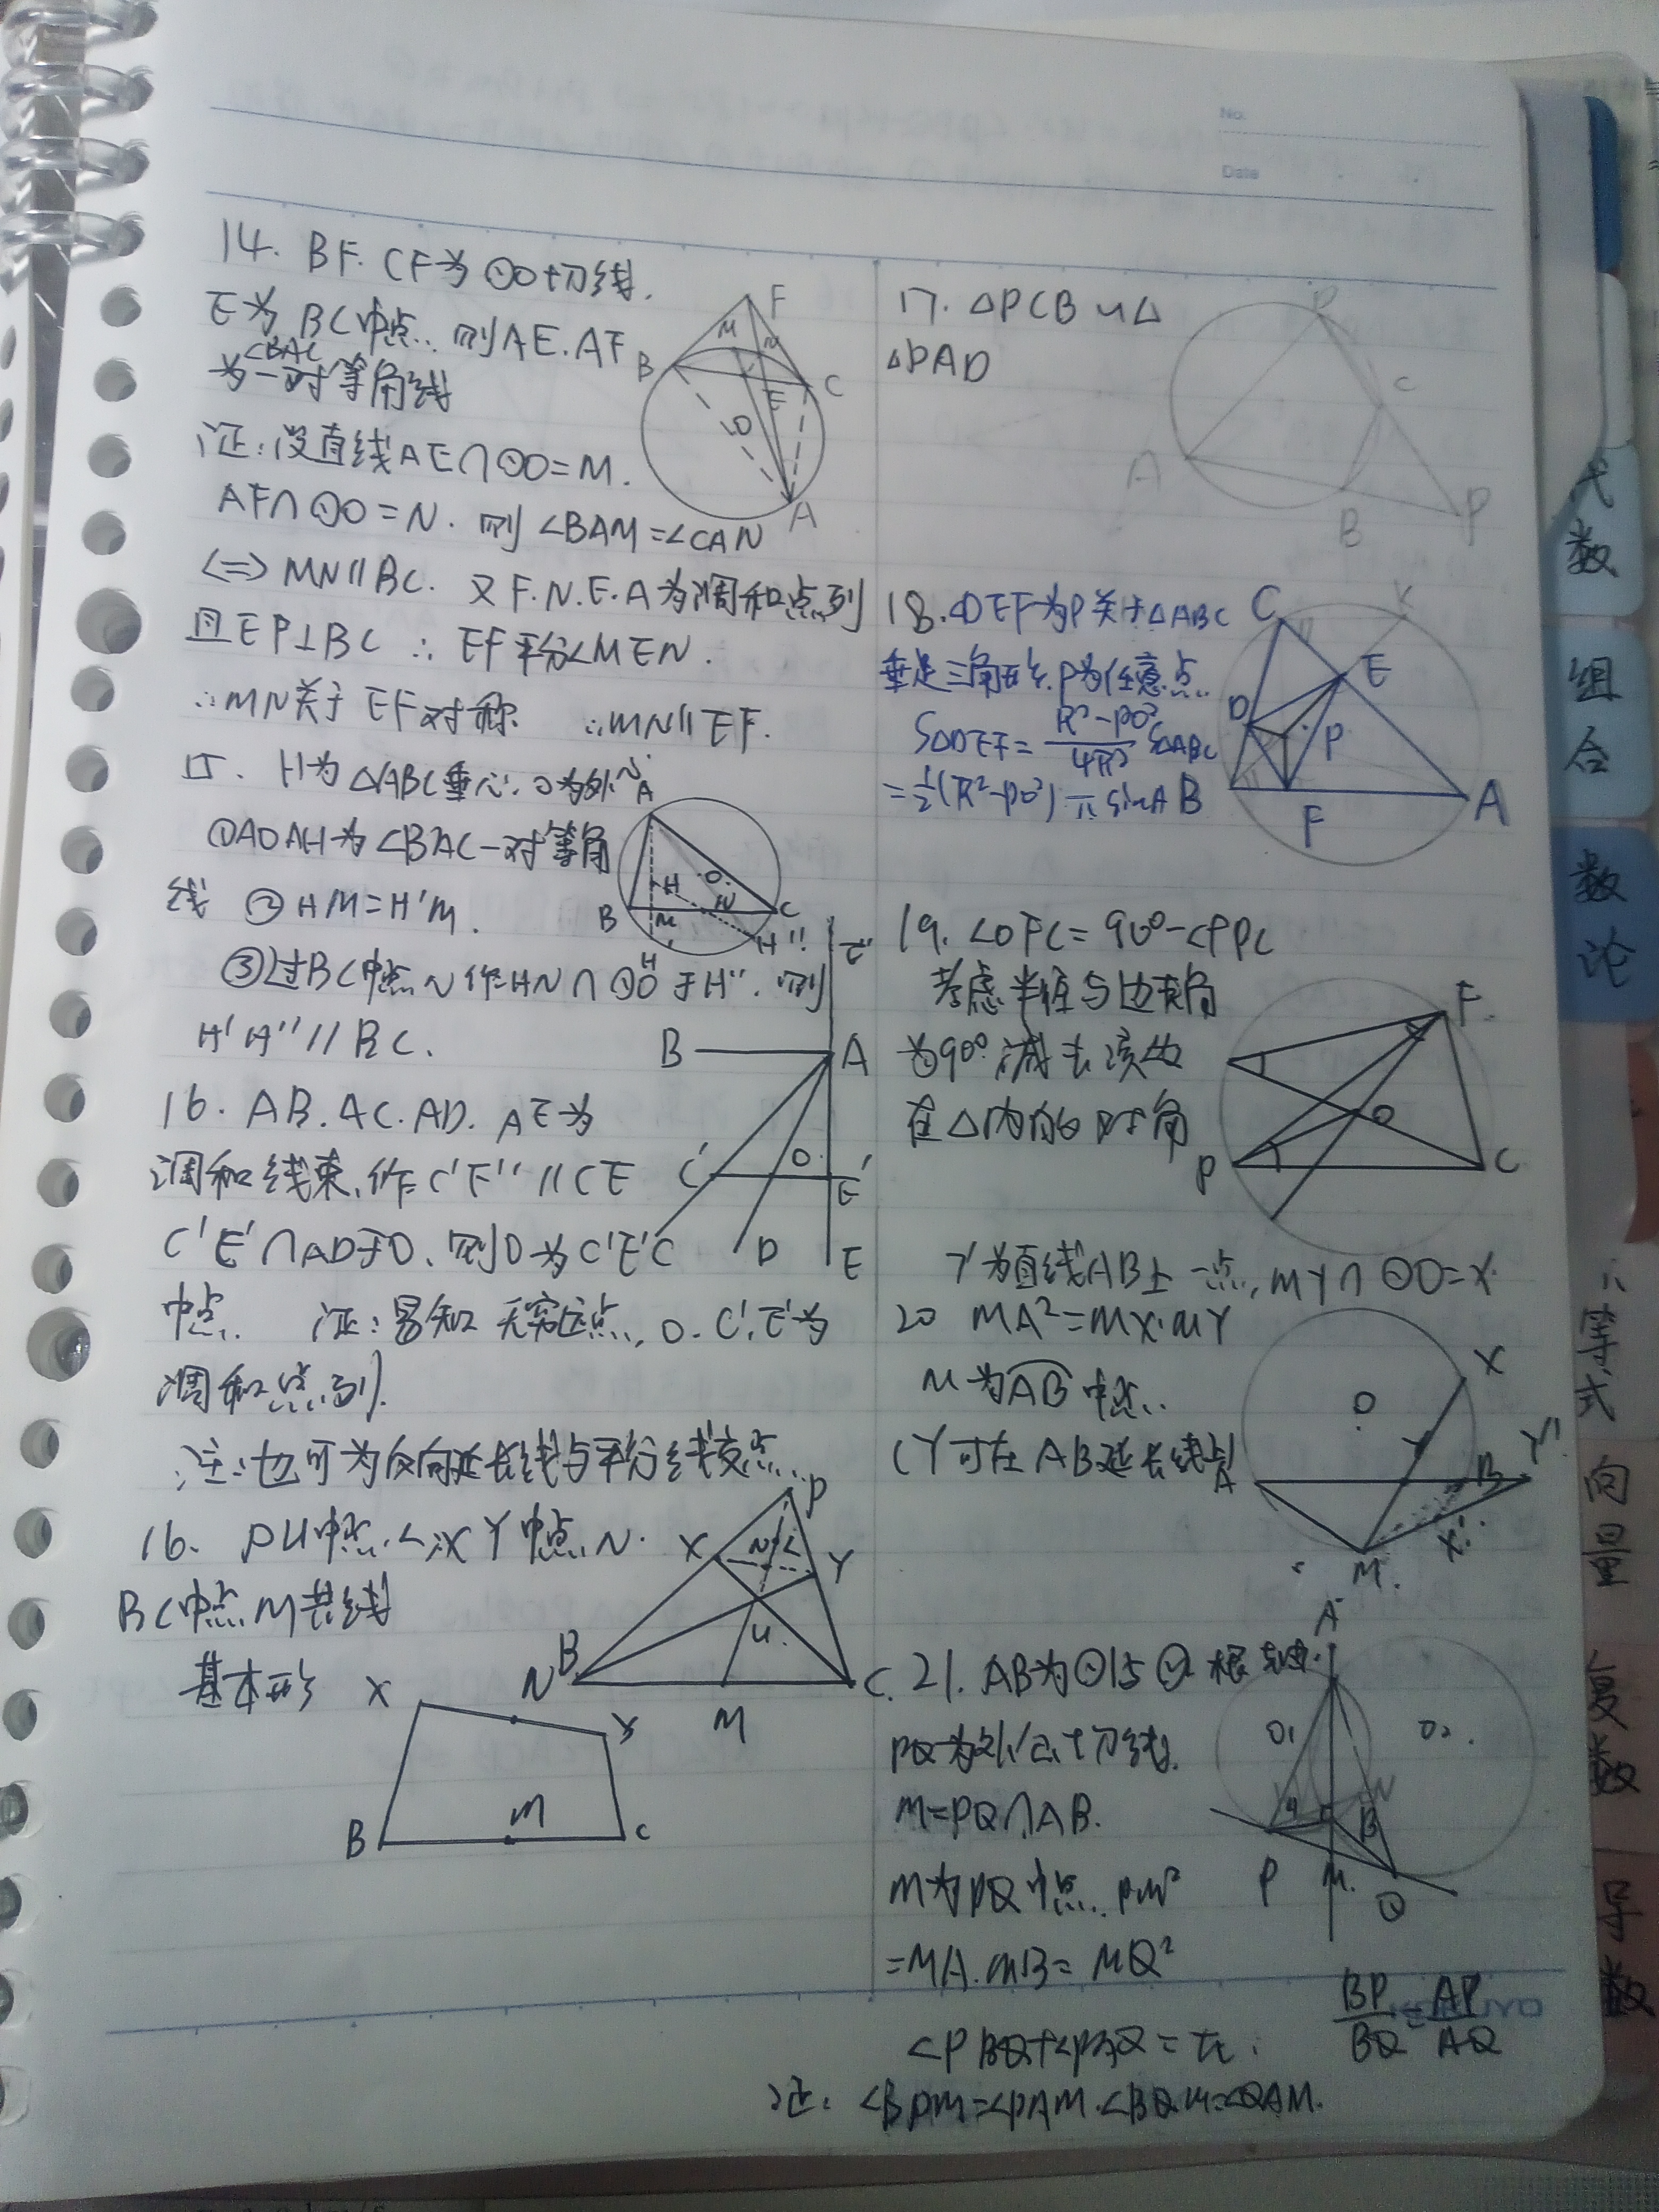 No.
Date
14. BF. CF为⊙O切线.
E为BC中点. 则AE.AF
为∠BAC一对等角线
证:设直线AE∩⊙O=M.
AF∩⊙O=N. 则∠BAM=∠CAN
<=> MN∥BC. 又F.N.E.A为调和点列
且EF⊥BC ∴EF平分∠MEN.
∴MN关于EF对称 ∴MN∥EF.
F
M
N
B
C
E
O
A
15. H为△ABC垂心.O为外心
①AO AH为∠BAC一对等角
线 ②HM=H'M.
③过BC中点N作HN∩⊙O于H''. 则
H'H''//BC.
A
H
O
B
M
N
C
H''
H'
16. AB.AC.AD. AE为
调和线束,作C'E'//CE
C'E'∩AD于O,则O为C'E'
中点. 证:易知无穷远点,O.C'.E'为
调和点列.
注:也可为反向延长线与平行线交点.
E'
B
A
C'
O
E'
C
D
E
16. PU中点L,XY中点N.
BC中点M共线
基本形
P
X
N
L
Y
U
N
B
M
C
X
Y
B
M
C
17. △PCB ∽△
△PAD
D
C
A
B
P
18.△DEF为P关于△ABC
垂足三角形.P为任意点.
S△DEF=(R²-PO²)/4R² S△ABC
=½(R²-PO²)π sinA
C
K
E
D
P
B
F
A
19. ∠OFC=90°-∠FPC
考虑半径与边夹角
为90°减去该边
在△内的对角
F
O
P
C
Y为直线AB上一点,MY∩⊙O=X
20 MA²=MX·MY
M为AB中点.
(Y可在AB延长线上)
X
O
Y
A
B
Y'
X'
M.
21. AB为⊙1与⊙2根轴.
PQ为外公切线.
M=PQ∩AB.
M为PQ中点. PM²
=MA.MB=MQ²
∠PBQ+∠PAQ=π.
BP/BQ=AP/AQ
证: ∠BPM=∠PAM.∠BQM=∠QAM.
A
O₁
O₂.
B
P
M.
Q
KOKUYO
代数
组合
数论
不等式
向量
复数
导数